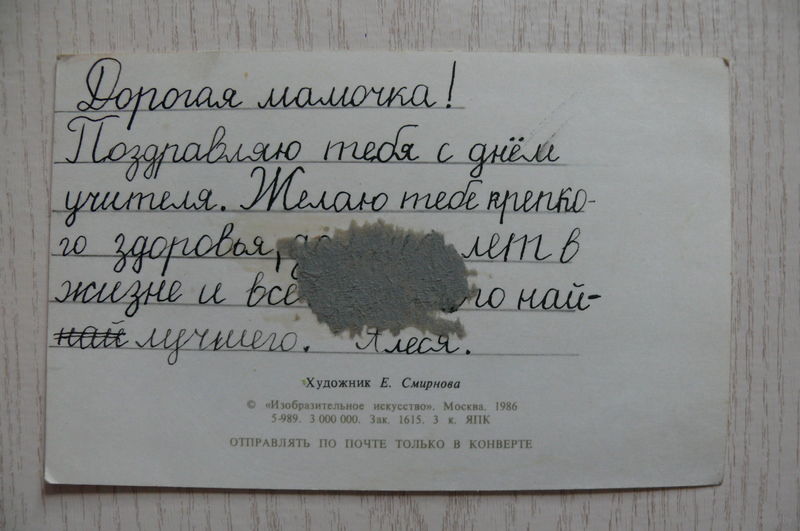 Дорогая мамочка!
Поздравляю тебя с днём
учителя. Желаю тебе крепко-
го здоровья, лет в
жизне и най-
най лучшего. Алеся.
Художник Е. Смирнова
© «Изобразительное искусство». Москва. 1986
5-989. 3 000 000. Зак. 1615. 3 к. ЯПК
ОТПРАВЛЯТЬ ПО ПОЧТЕ ТОЛЬКО В КОНВЕРТЕ